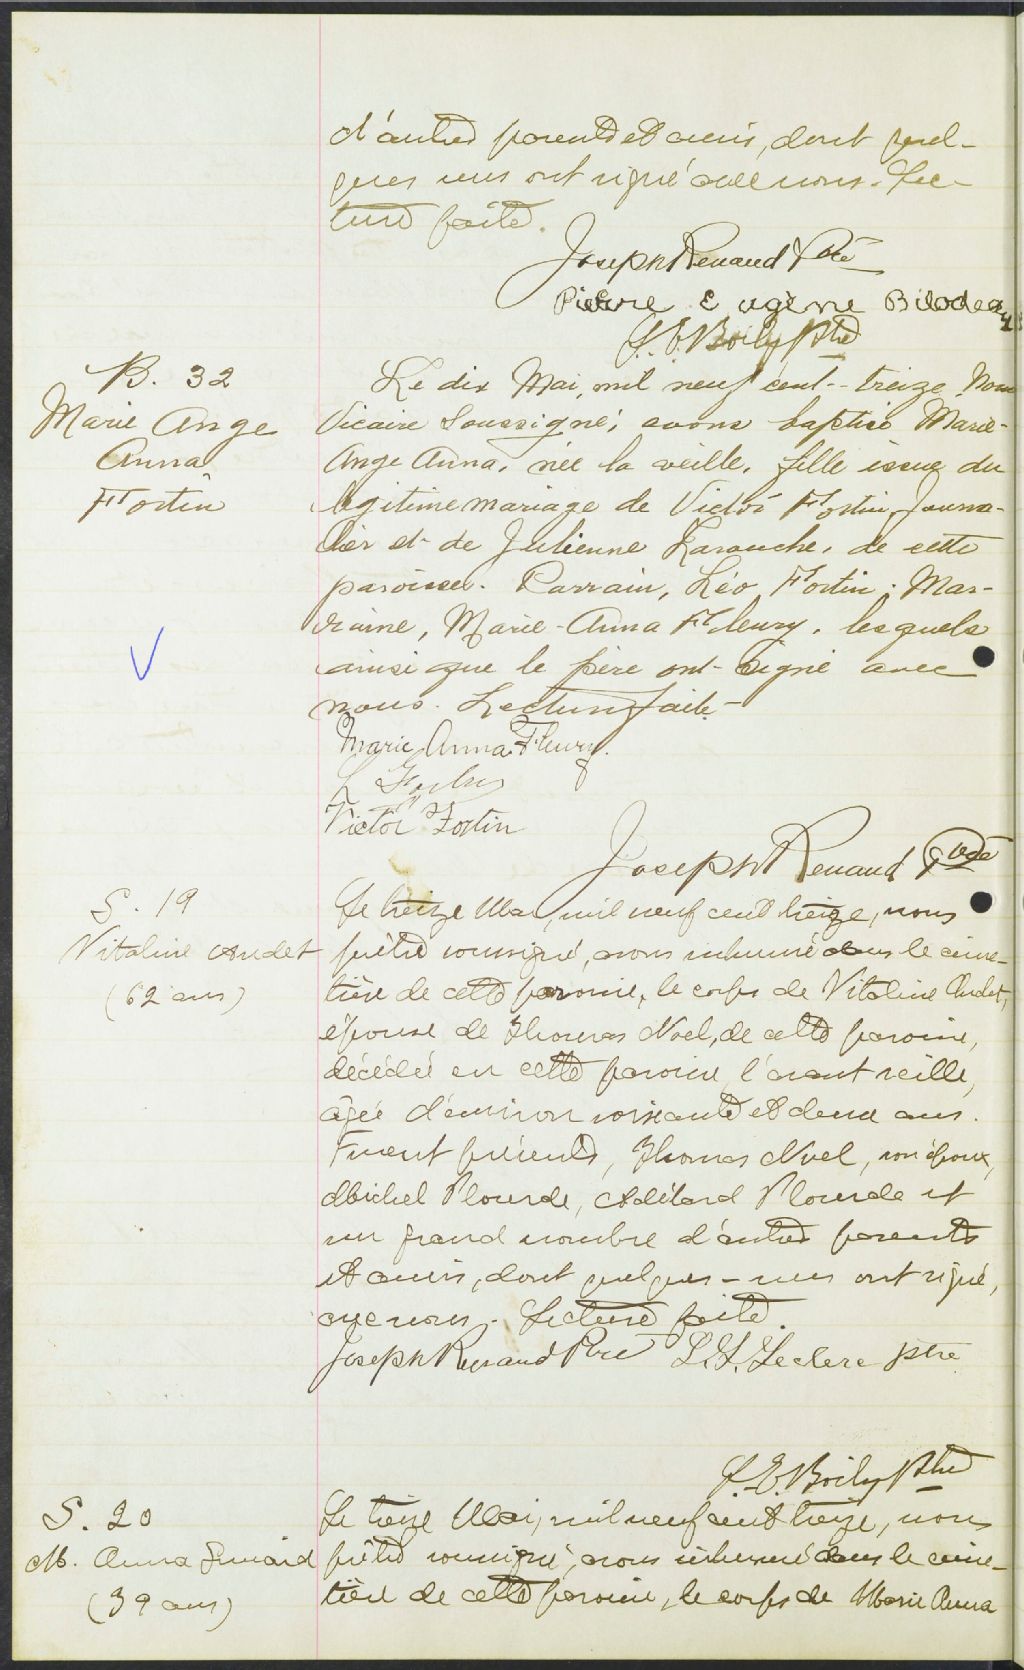 d'autres parents et amis, dont quel-
ques uns ont signé avec nous. Lec-
ture faite.
Joseph Renaud Ptre
Pierre Eugène Bilodeau
J. E. Boily Ptre
B. 32
Marie Ange
Anna
Fortin
Le dix Mai, mil neuf cent-treize, Nous
Vicaire Soussigné, avons baptisé Marie-
Ange Anna, née la veille, fille issue du
légitime mariage de Victor Fortin, Journa-
lier et de Julienne Larouche, de cette
paroisse. Parrain, Léo Fortin; Mar-
raine, Marie-Anna Fleury, lesquels
ainsi que le père ont signé avec
nous. Lecture faite-
Marie Anna Fleury.
L Fortin
Victor Fortin
Joseph Renaud Ptre
S. 19
Vitaline Audet
(62 ans)
Le treize Mai, mil neuf cent treize, nous
prêtre soussigné, avons inhumé dans le cime-
tière de cette paroisse, le corps de Vitaline Audet,
épouse de Thomas Noel, de cette paroisse,
décédée en cette paroisse l'avant veille,
âgée d'environ soixante et deux ans.
Furent présents, Thomas Noel, son époux,
Michel Plourde, Adélard Plourde et
un grand nombre d'autres parents
et amis, dont quelques-uns ont signé,
avec nous. Lecture faite.
Joseph Renaud Ptre L. G. Leclerc ptre
J. E. Boily Ptre
S. 20
M. Anna Simard
(39 ans)
Le treize Mai, mil neuf cent treize, nous
prêtre soussigné, avons inhumé dans le cime-
tière de cette paroisse, le corps de Marie Anna